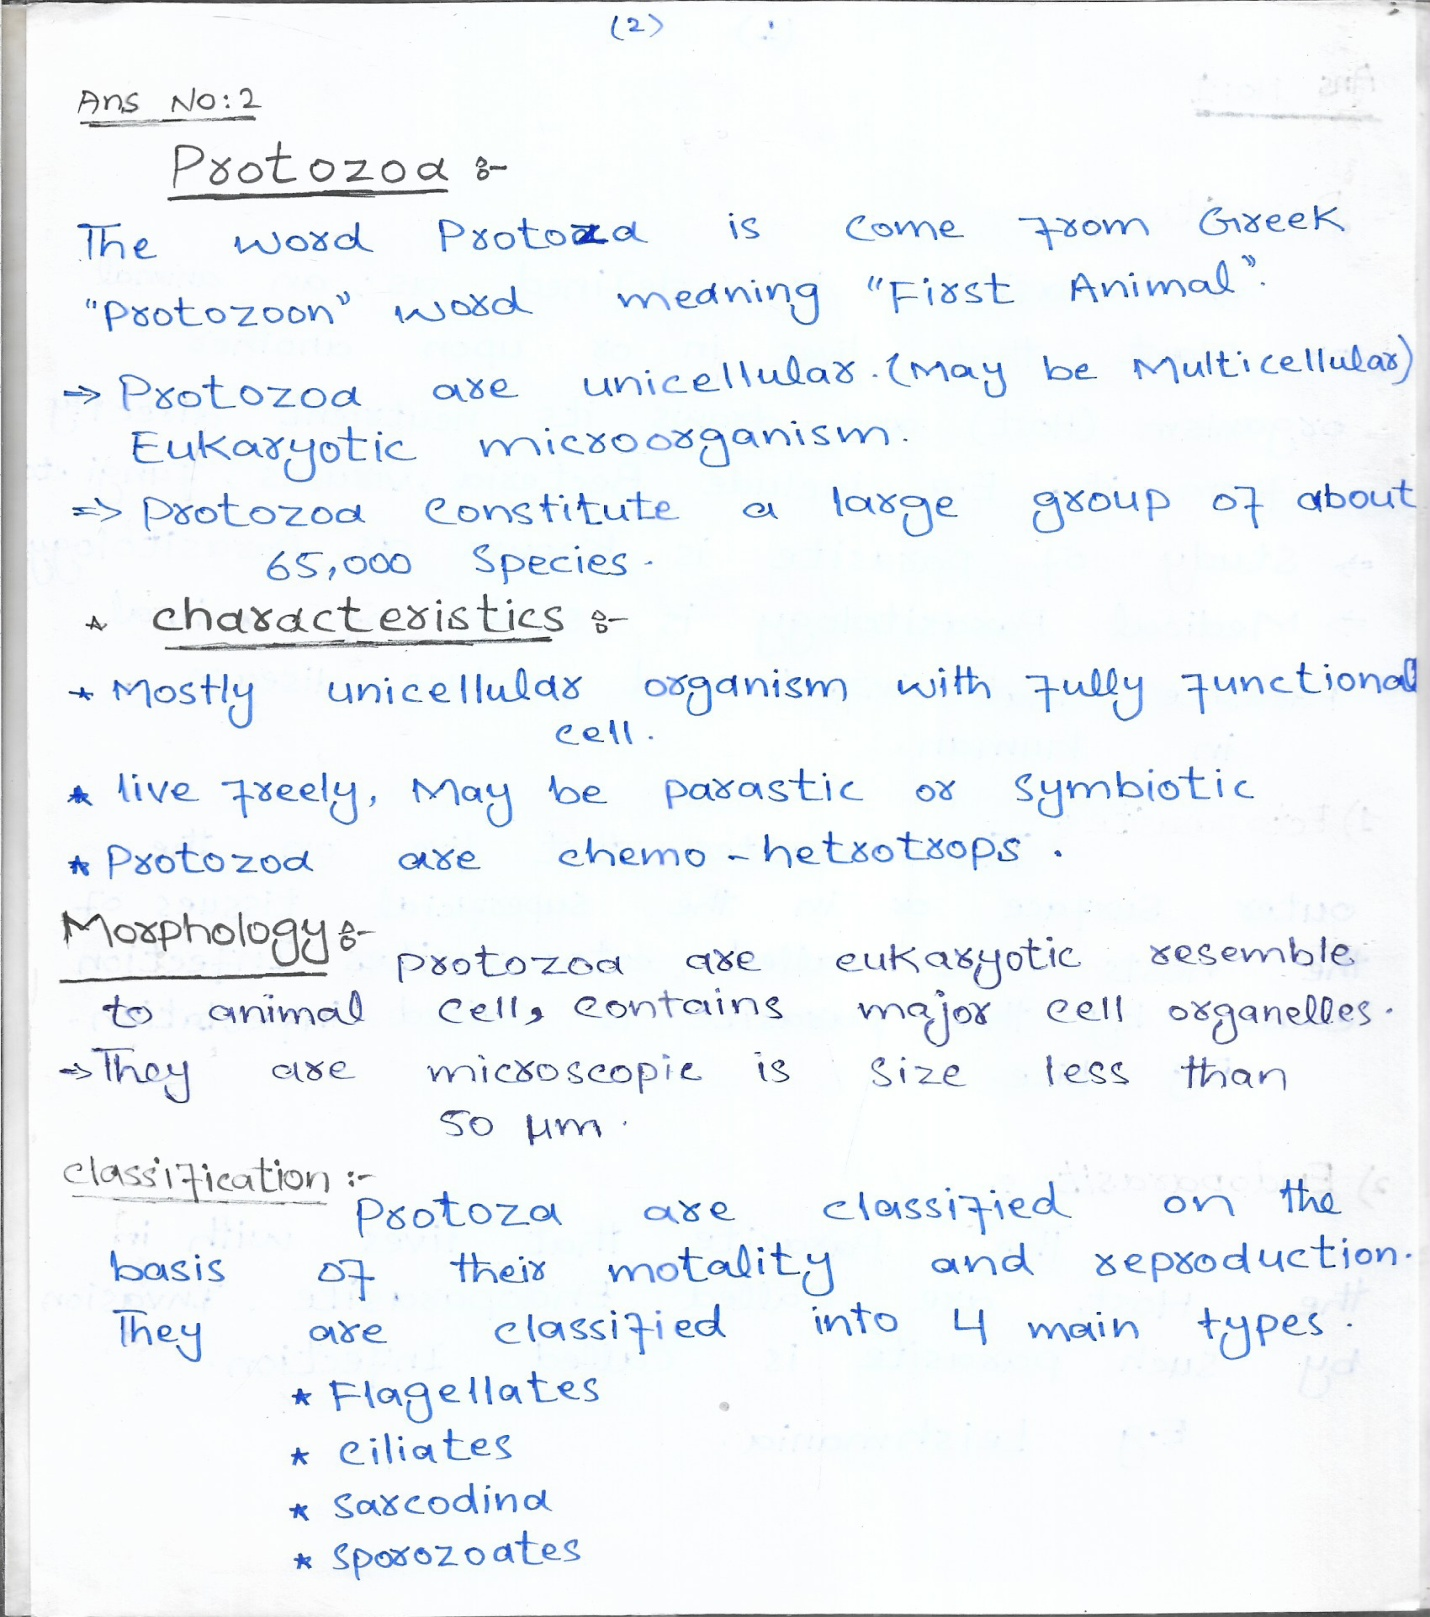 (2)
Ans No:2
Protozoa :-
The word Protozoa is come from Greek
"Protozoon" word meaning "First Animal".
⇒ Protozoa are unicellular. (May be Multicellular)
Eukaryotic microorganism.
⇒ Protozoa constitute a large group of about
65,000 Species.
* characteristics :-
* Mostly unicellular organism with fully functional
cell.
* live freely, May be parastic or symbiotic
* Protozoa are chemo-hetrotrops.
Morphology :-
protozoa are eukaryotic resemble
to animal cell, contains major cell organelles.
⇒ They are microscopic is size less than
50 µm.
classification :-
Protoza are classified on the
basis of their motality and reproduction.
They are classified into 4 main types.
* Flagellates
* ciliates
* Sarcodina
* Sporozoates